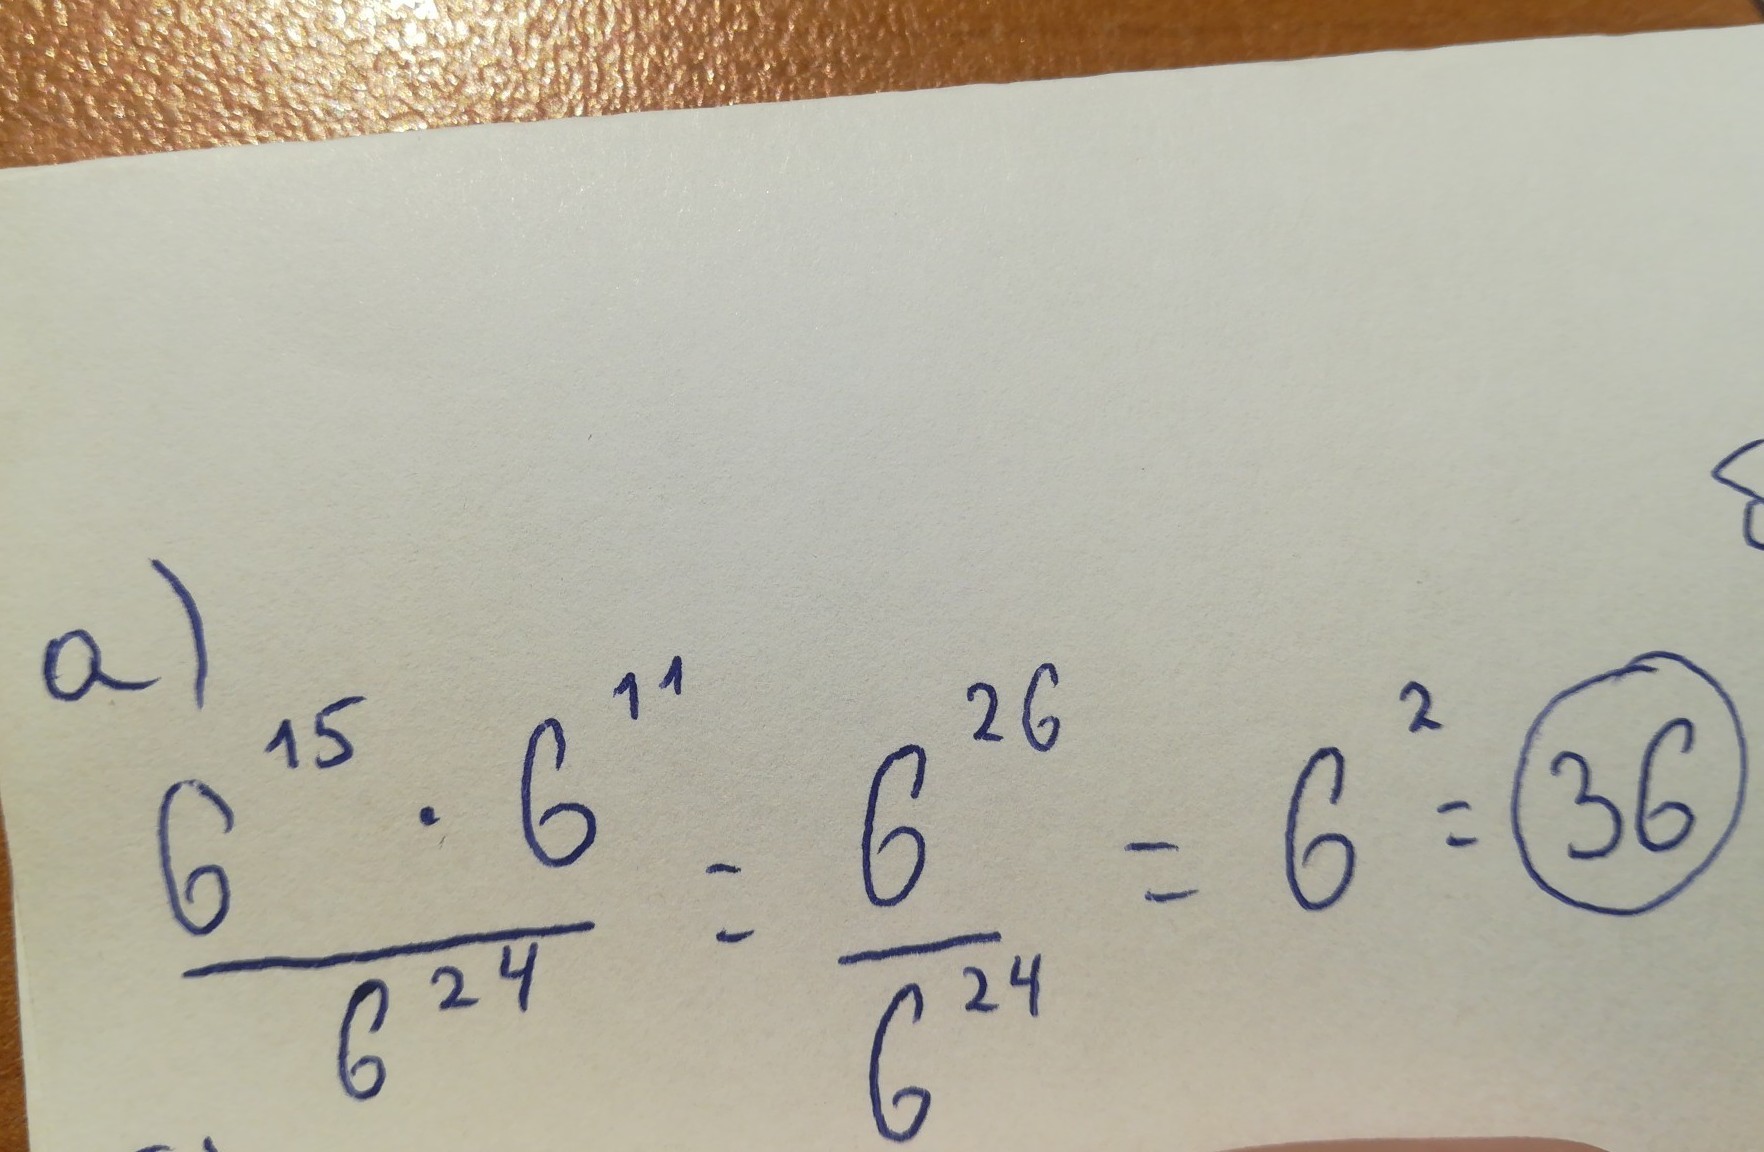 a)
6^15 · 6^11 / 6^24 = 6^26 / 6^24 = 6^2 = 36